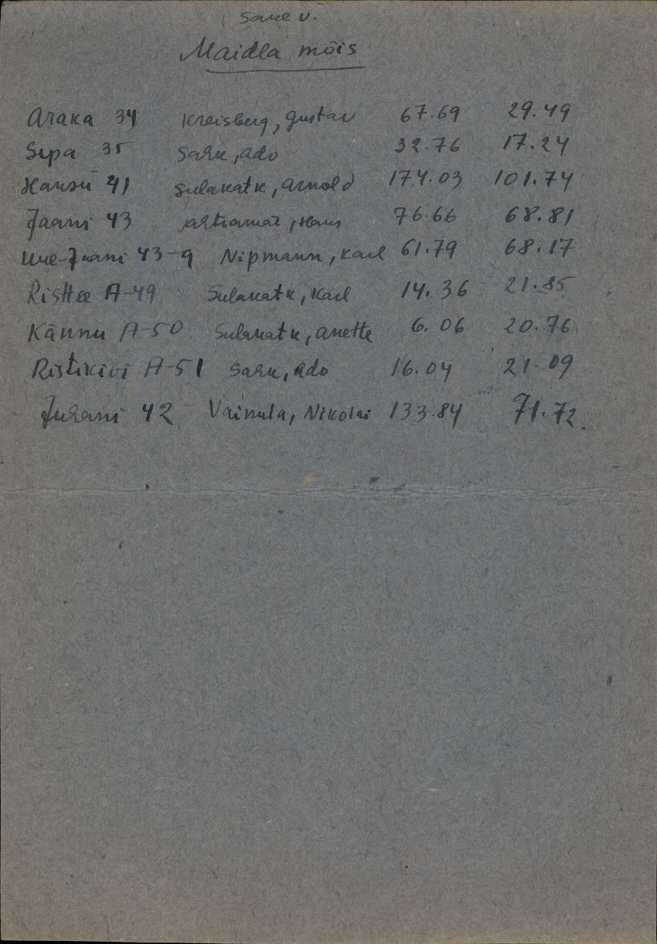 Saue v.
Maidla mõis
Araka 34 Kreisberg, Gustav 67.69 29.49
Sepa 35 Sarn, Ado 32.76 17.24
Hansu 41 Sulakatk, Arnold 174.03 101.74
Jaani 43 Hans 76.66 68.81
Uue-Jaani 43-9 Nipmann, Karl 61.79 68.17
Risttee A-49 Sulakatk, Karl 14.36 21.85
Kännu A-50 Sulakatk, Anette 6.06 20.76
Ristikivi A-51 Sarn, Ado 16.04 21.09
Juhani 42 Vainula, Nikolai 133.84 71.72.